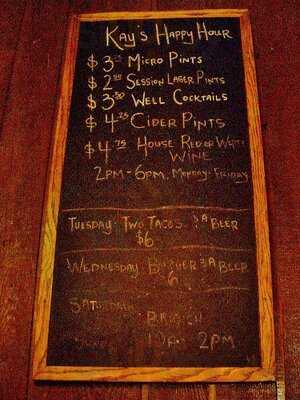 Kay's Happy Hour
$3 Micro Pints
$2 Session Lager Pints
$3.50 Well Cocktails
$4.25 Cider Pints
$4.75 House Red or White
Wine
2PM-6PM, Monday-Friday
Tuesday Two Tacos & A Beer
$6
Wednesday Burger & A Beer
Saturday
Brunch
2PM